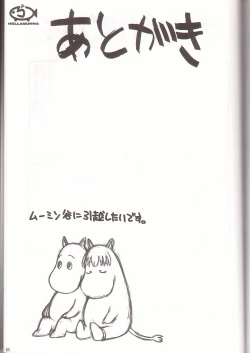 5
HELLABUNNA
あとがき
ムーミン谷に引越したいです。